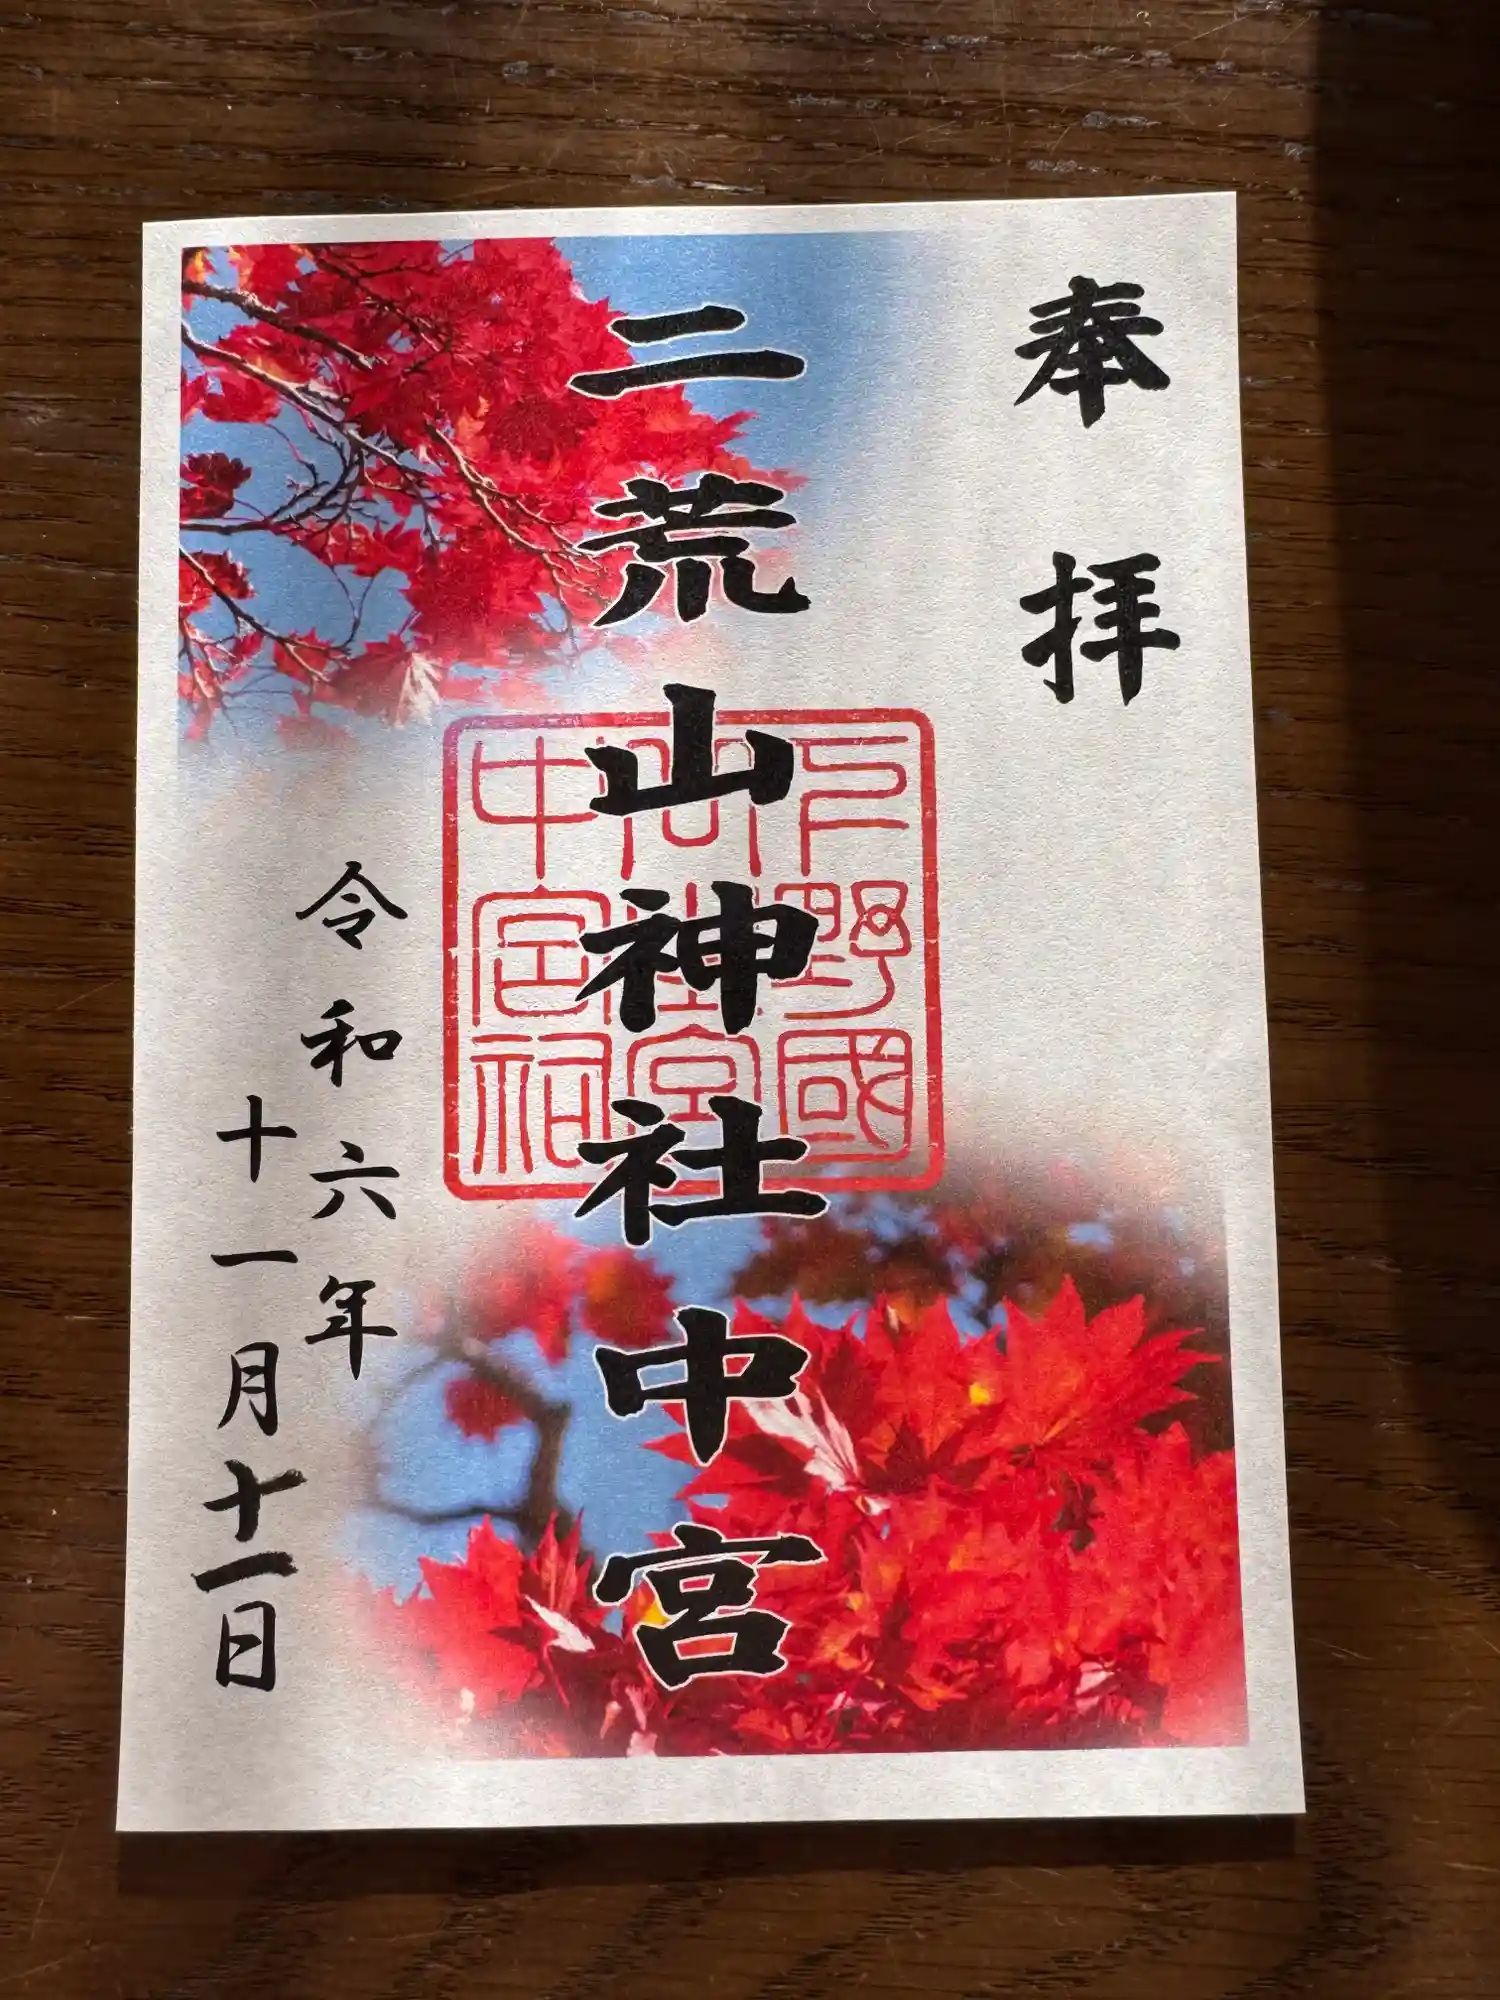 奉拝
二荒山神社中宮
下野國
中宮祠
令和六年
十一月十一日